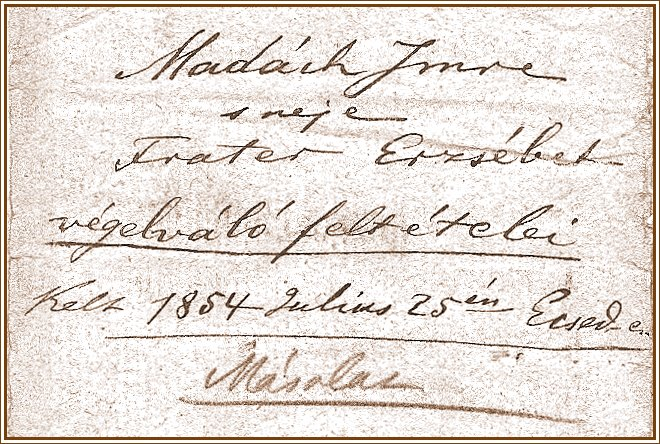 Madách Imre
s neje
Frater Erzsébet
végelváló feltételei
Kelt 1854 Julius 25én Ecseden
Másolat